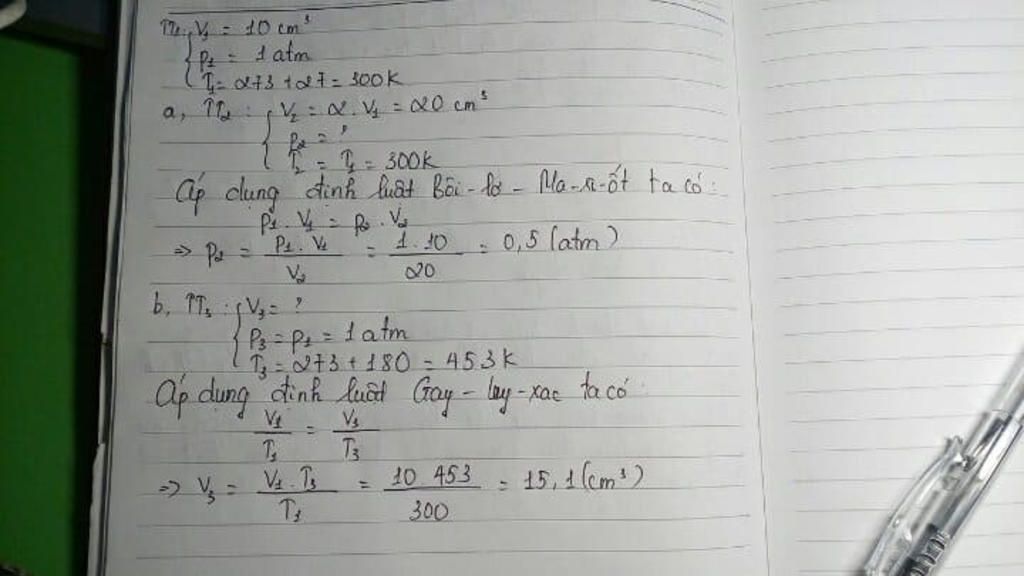 TT1: V1 = 10 cm³
p1 = 1 atm
T1 = 273 + 27 = 300K
a, TT2 : V2 = 2 . V1 = 20 cm³
p2 = ?
T2 = T1 = 300K
Áp dụng định luật Bôi-lơ - Ma-ri-ốt ta có :
p1 . V1 = p2 . V2
=> p2 = p1 . V1 / V2 = 1 . 10 / 20 = 0,5 (atm)
b, TT3 : V3 = ?
P3 = p1 = 1 atm
T3 = 273 + 180 = 453 K
Áp dụng định luật Gay - luy - xac ta có :
V1 / T1 = V3 / T3
=> V3 = V1 . T3 / T1 = 10 453 / 300 = 15,1 (cm³)